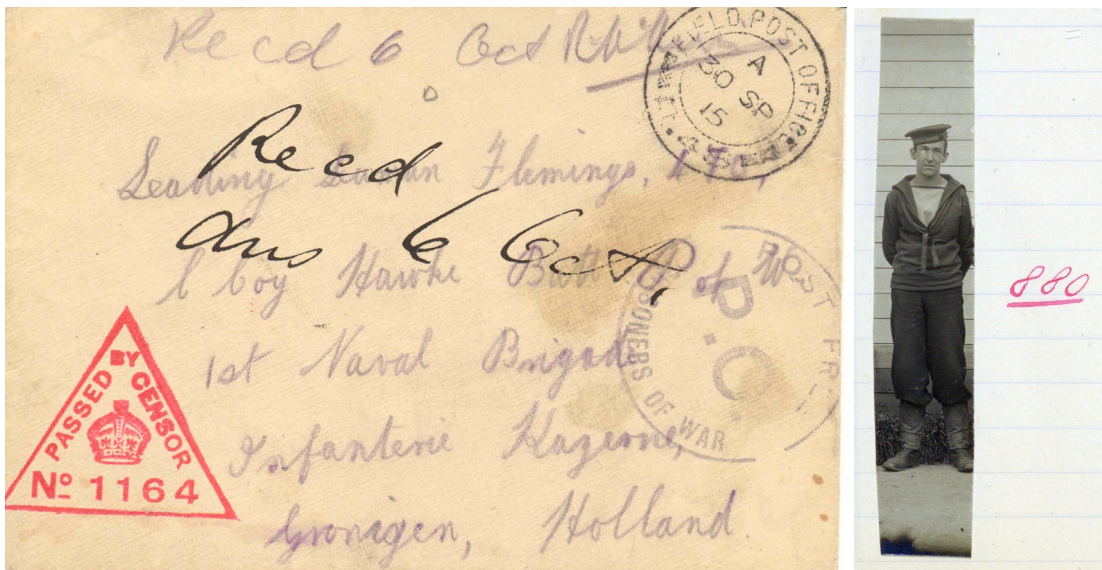 Recd 6 Oct
FIELD POST OFFICE
A
30 SP
15
Recd
ans 6 Oct,
Leading Flemings,
Coy Hawke Battn P of W
1st Naval Brigade
Infanterie Kazerne,
Gronigen, Holland.
POST FREE
P.C.
PRISONERS OF WAR
PASSED BY CENSOR
No 1164
880